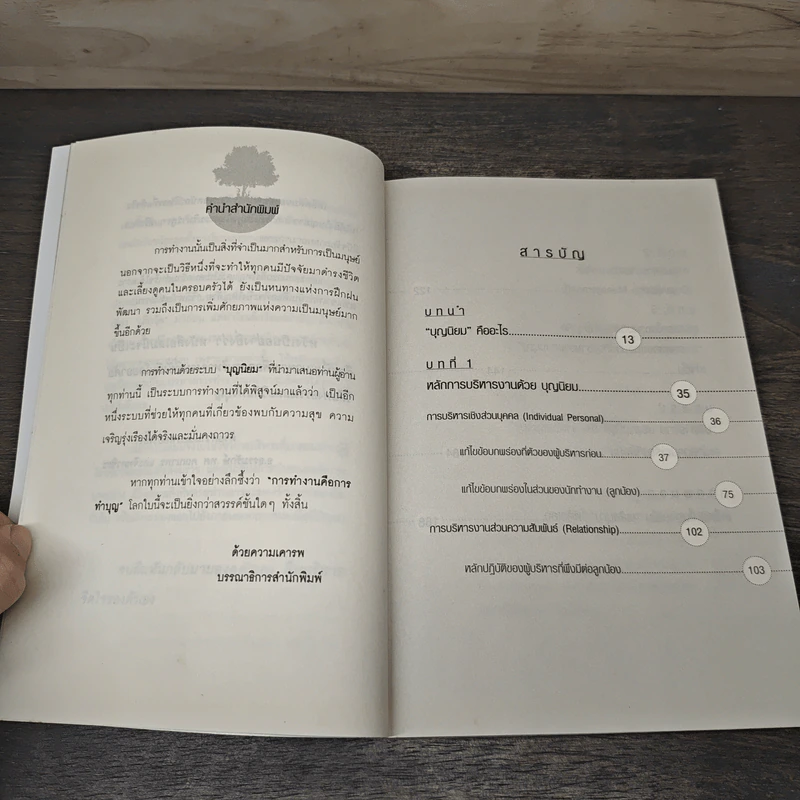 คำนำสำนักพิมพ์
การทำงานนั้นเป็นสิ่งที่จำเป็นมากสำหรับการเป็นมนุษย์
นอกจากจะเป็นวิธีหนึ่งที่จะทำให้ทุกคนมีปัจจัยมาดำรงชีวิต
และเลี้ยงดูคนในครอบครัวได้ ยังเป็นหนทางแห่งการฝึกฝน
พัฒนา รวมถึงเป็นการเพิ่มศักยภาพแห่งความเป็นมนุษย์มาก
ขึ้นอีกด้วย
การทำงานด้วยระบบ "บุญนิยม" ที่นำมาเสนอท่านผู้อ่าน
ทุกท่านนี้ เป็นระบบการทำงานที่ได้พิสูจน์มาแล้วว่า เป็นอีก
หนึ่งระบบที่ช่วยให้ทุกคนที่เกี่ยวข้องพบกับความสุข ความ
เจริญรุ่งเรืองได้จริงและมั่นคงถาวร
หากทุกท่านเข้าใจอย่างลึกซึ้งว่า "การทำงานคือการ
ทำบุญ" โลกใบนี้จะเป็นยิ่งกว่าสวรรค์ชั้นใดๆ ทั้งสิ้น
ด้วยความเคารพ
บรรณาธิการสำนักพิมพ์
สารบัญ
บทนำ
"บุญนิยม" คืออะไร 13
บทที่ 1
หลักการบริหารงานด้วย บุญนิยม 35
การบริหารเชิงส่วนบุคคล (Individual Personal) 36
แก้ไขข้อบกพร่องที่ตัวของผู้บริหารก่อน 37
แก้ไขข้อบกพร่องในส่วนของนักทำงาน (ลูกน้อง) 75
การบริหารงานส่วนความสัมพันธ์ (Relationship) 102
หลักปฏิบัติของผู้บริหารที่พึงมีต่อลูกน้อง 103